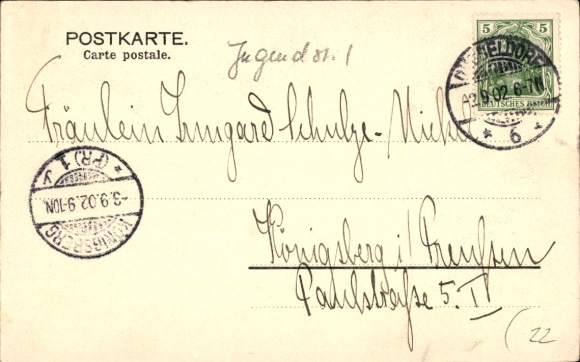 POSTKARTE.
Carte postale.
Jugendst. 1
5 5
DEUTSCHES REICH
DÜSSELDORF
2.9.02. 6-7N
* 6 *
Fräulein Irmgard Schulze-
* (PR.) 1
-3.9.02. 9-10N.
KÖNIGSBERG
Königsberg i/Preußen
Paulstraße 5. II
22